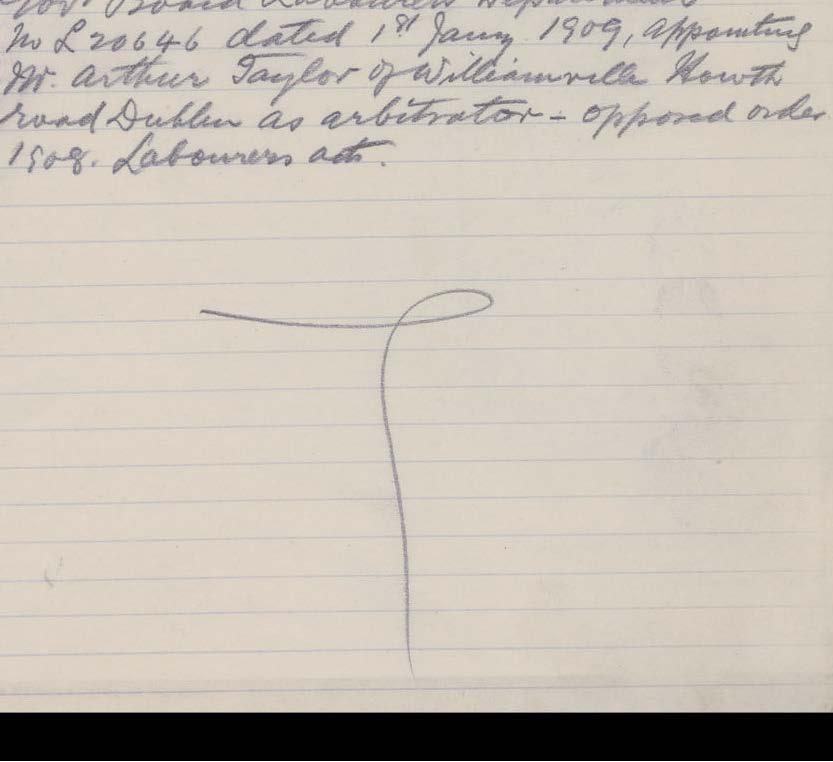 Gov. Board Labourers Department
No L 20646 dated 1st Jany 1909, appointing
Mr. Arthur Taylor of Williamville Howth
road Dublin as arbitrator - opposed order
1908. Labourers acts.